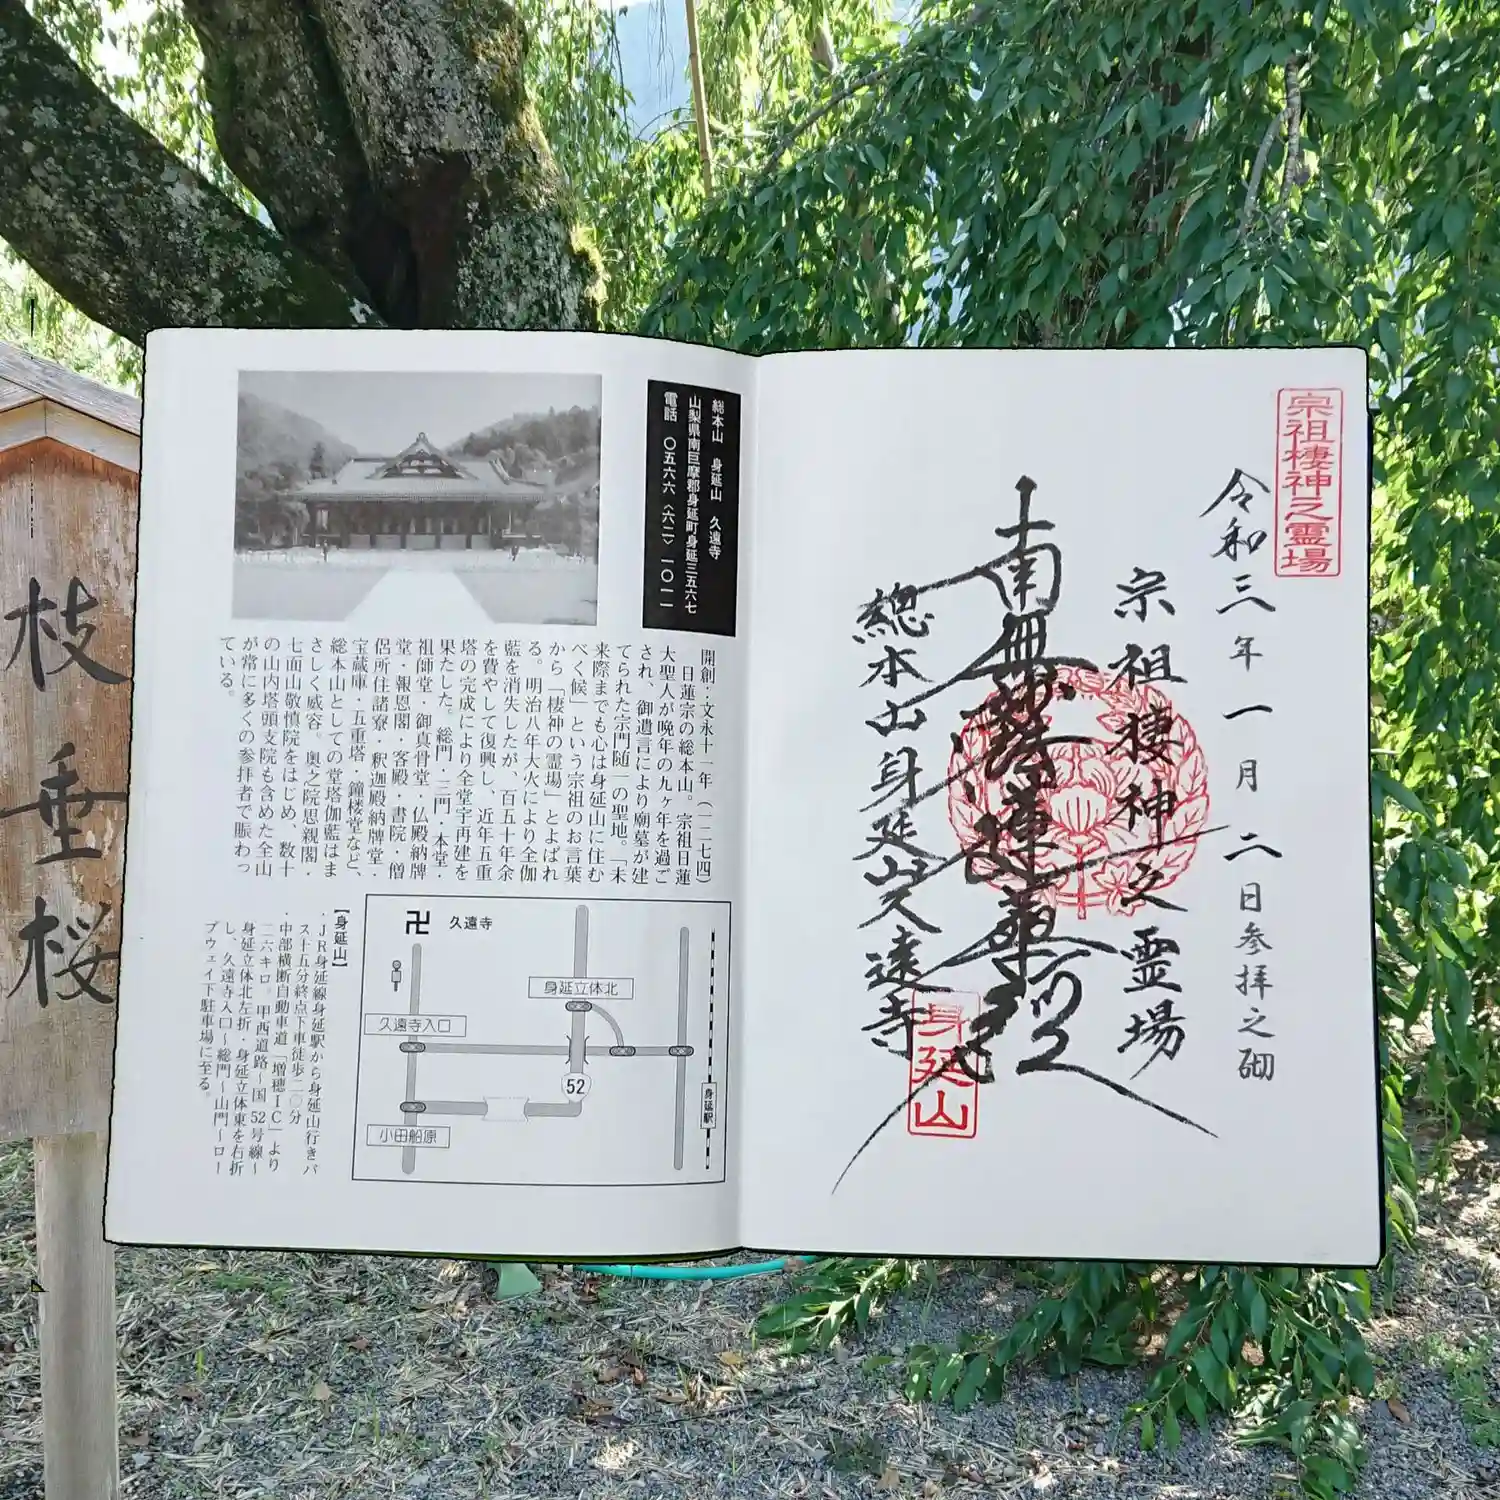 宗祖棲神之霊場
令和三年一月二日参拝之砌
宗祖棲神之霊場
南無妙法蓮華経
総本山身延山久遠寺
身延山
総本山 身延山 久遠寺
山梨県南巨摩郡身延町身延三五六七
電話 〇五六六〈六二〉一〇一一
開創：文永十一年（一二七四）
日蓮宗の総本山。宗祖日蓮
大聖人が晩年の九ヶ年を過ご
され、御遺言により廟墓が建
てられた宗門随一の聖地。「未
来際までも心は身延山に住む
べく候」という宗祖のお言葉
から「棲神の霊場」とよばれ
る。明治八年大火により全伽
藍を消失したが、百五十年余
を費やして復興し、近年五重
塔の完成により全堂宇再建を
果たした。総門・三門・本堂・
祖師堂・御真骨堂・仏殿納牌
堂・報恩閣・客殿・書院・僧
侶所住諸寮・釈迦殿納牌堂・
宝蔵庫・五重塔・鐘楼堂など、
総本山としての堂塔伽藍はま
さしく威容。奥之院思親閣・
七面山敬慎院をはじめ、数十
の山内塔頭支院も含めた全山
が常に多くの参拝者で賑わっ
ている。
卍 久遠寺
身延立体北
久遠寺入口
52
身延駅
小田船原
【身延山】
・ＪＲ身延線身延駅から身延山行きバ
ス十五分終点下車徒歩二〇分
・中部横断自動車道「増穂ＩＣ」より
二六キロ 甲西道路～国52号線～
身延立体北左折・身延立体東を右折
し、久遠寺入口～総門～山門～ロー
プウェイ下駐車場に至る。
枝垂桜